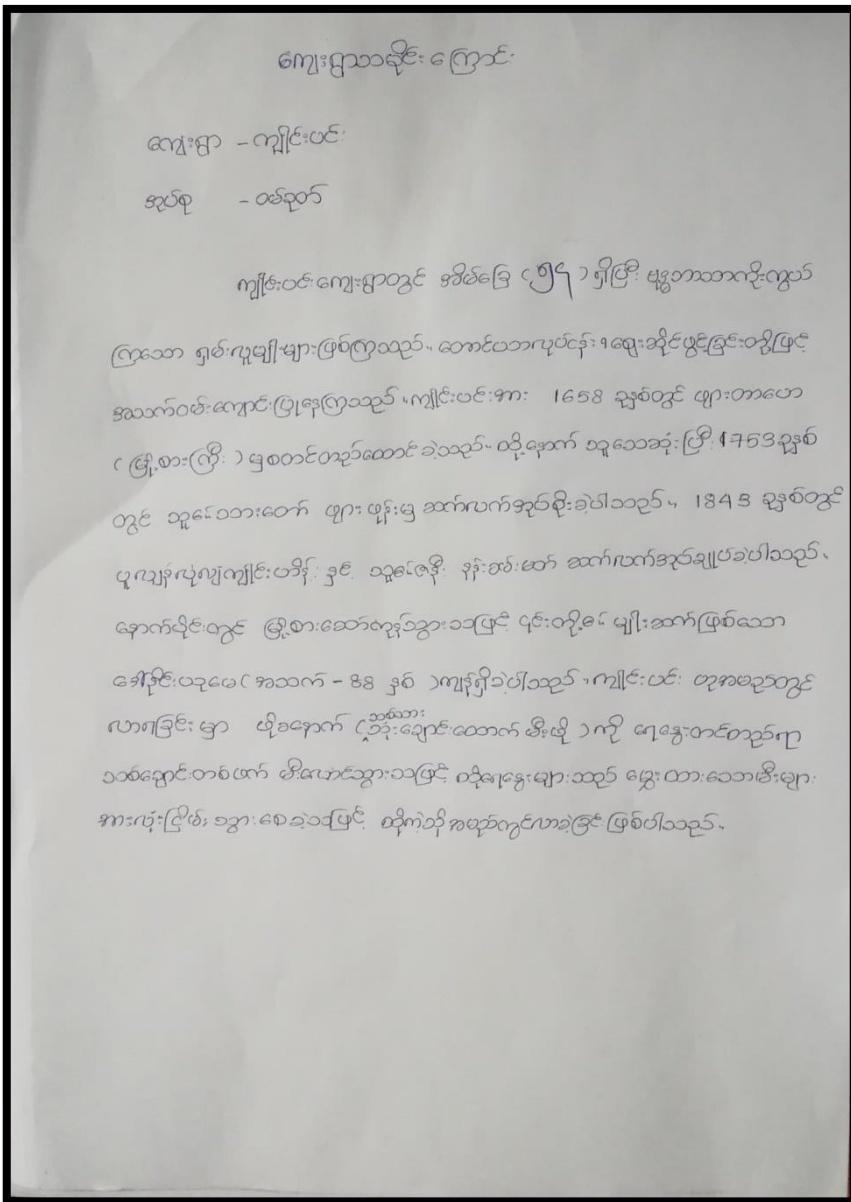 ကျေးရွာသမိုင်းကြောင်း
ကျေးရွာ - ကျိုင်းပင်း
အုပ်စု - ဝမ်ခုတ်
ကျိုင်းပင်းကျေးရွာတွင် အိမ်ခြေ (၅၄) ရှိပြီး ဗုဒ္ဓဘာသာကိုးကွယ်
ကြသော ရှမ်းလူမျိုးများဖြစ်ကြသည်။ တောင်ယာလုပ်ငန်း၊ ဈေးဆိုင်ဖွင့်ခြင်းတို့ဖြင့်
အသက်ဝမ်းကျောင်းပြုနေကြသည်။ ကျိုင်းပင်းအား 1658 ခုနှစ်တွင် ဖျားတာဟော
(မြို့စားကြီး) မှစတင်တည်ထောင်ခဲ့သည်။ ထို့နောက် သူသေဆုံးပြီး 1753 ခုနှစ်
တွင် သူ၏သားတော် ဖျားဖုန်းမှ ဆက်လက်အုပ်စိုးခဲ့ပါသည်။ 1843 ခုနှစ်တွင်
ကျိုင်းဟိန်း နှင့် သူ၏ဇနီး နန်းအမ်းမတ် ဆက်လက်အုပ်ချုပ်ခဲ့ပါသည်။
နောက်ပိုင်းတွင် မြို့စားဆော်ကုန်သွားသဖြင့် ၎င်းတို့၏ မျိုးဆက်ဖြစ်သော
(အသက် - 88 နှစ်) ကျန်ရှိခဲ့ပါသည်။ ကျိုင်းပင်း ဟုအမည်တွင်
လာရခြင်းမှာ ဖိုခနောက် (သစ်သားသုံးချောင်းထောက်မီးဖို) ကို ရေနွေးတင်တည်ရာ
သစ်ချောင်းတစ်ဖက် မီးလောင်သွားသဖြင့် ထိုရေနွေးများသည် မွှေးထားသောမီးများ
အားလုံးငြိမ်းသွားစေခဲ့သဖြင့် ထိုကဲ့သို့အမည်တွင်လာခဲ့ခြင်းဖြစ်ပါသည်။